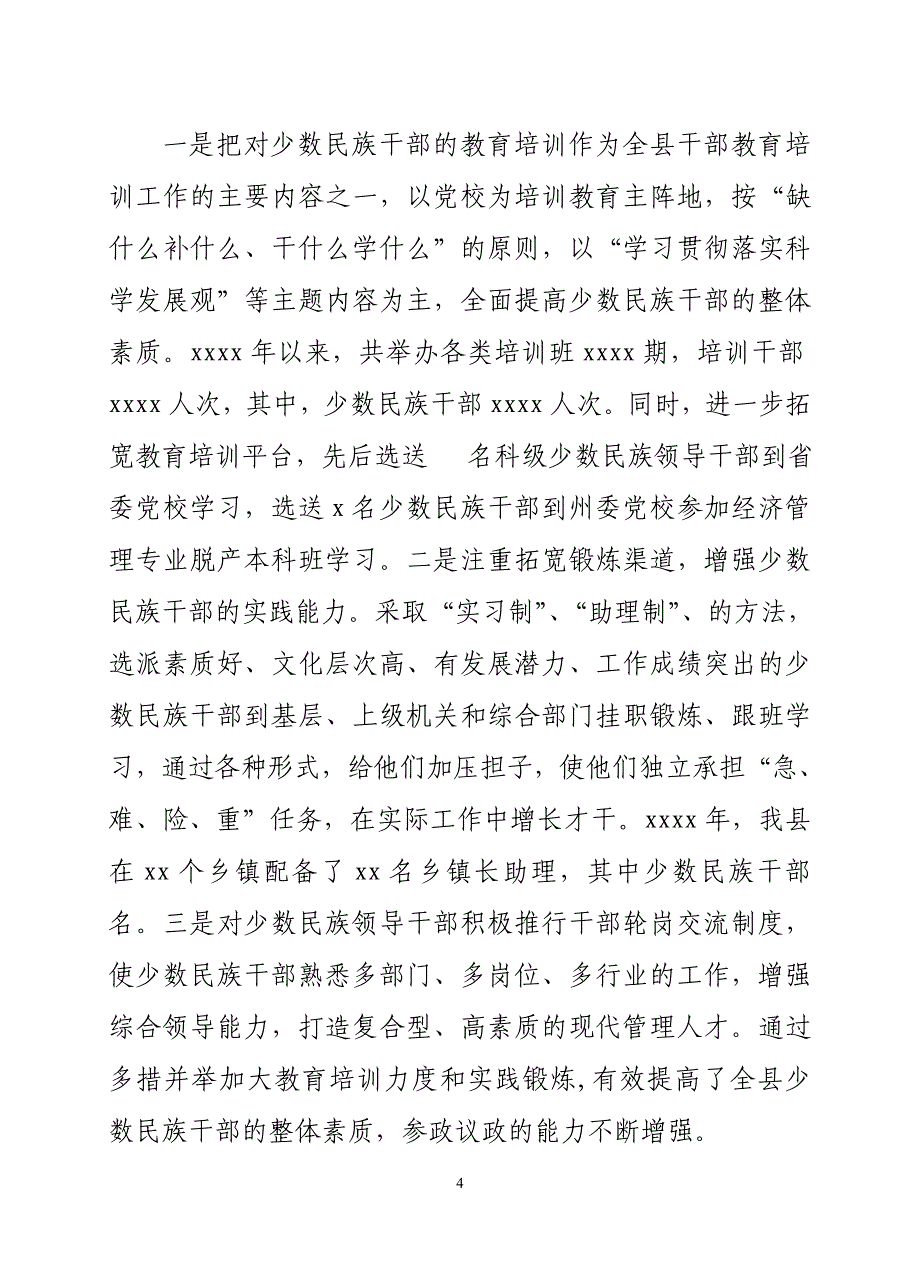 一是把对少数民族干部的教育培训作为全县干部教育培
训工作的主要内容之一，以党校为培训教育主阵地，按“缺
什么补什么、干什么学什么”的原则，以“学习贯彻落实科
学发展观”等主题内容为主，全面提高少数民族干部的整体
素质。xxxx 年以来，共举办各类培训班 xxxx 期，培训干部
xxxx 人次，其中，少数民族干部 xxxx 人次。同时，进一步拓
宽教育培训平台，先后选送 名科级少数民族领导干部到省
委党校学习，选送 x 名少数民族干部到州委党校参加经济管
理专业脱产本科班学习。二是注重拓宽锻炼渠道，增强少数
民族干部的实践能力。采取“实习制”、“助理制”、的方法，
选派素质好、文化层次高、有发展潜力、工作成绩突出的少
数民族干部到基层、上级机关和综合部门挂职锻炼、跟班学
习，通过各种形式，给他们加压担子，使他们独立承担“急、
难、险、重”任务，在实际工作中增长才干。xxxx 年，我县
在 xx 个乡镇配备了 xx 名乡镇长助理，其中少数民族干部
名。三是对少数民族领导干部积极推行干部轮岗交流制度，
使少数民族干部熟悉多部门、多岗位、多行业的工作，增强
综合领导能力，打造复合型、高素质的现代管理人才。通过
多措并举加大教育培训力度和实践锻炼,有效提高了全县少
数民族干部的整体素质，参政议政的能力不断增强。
4